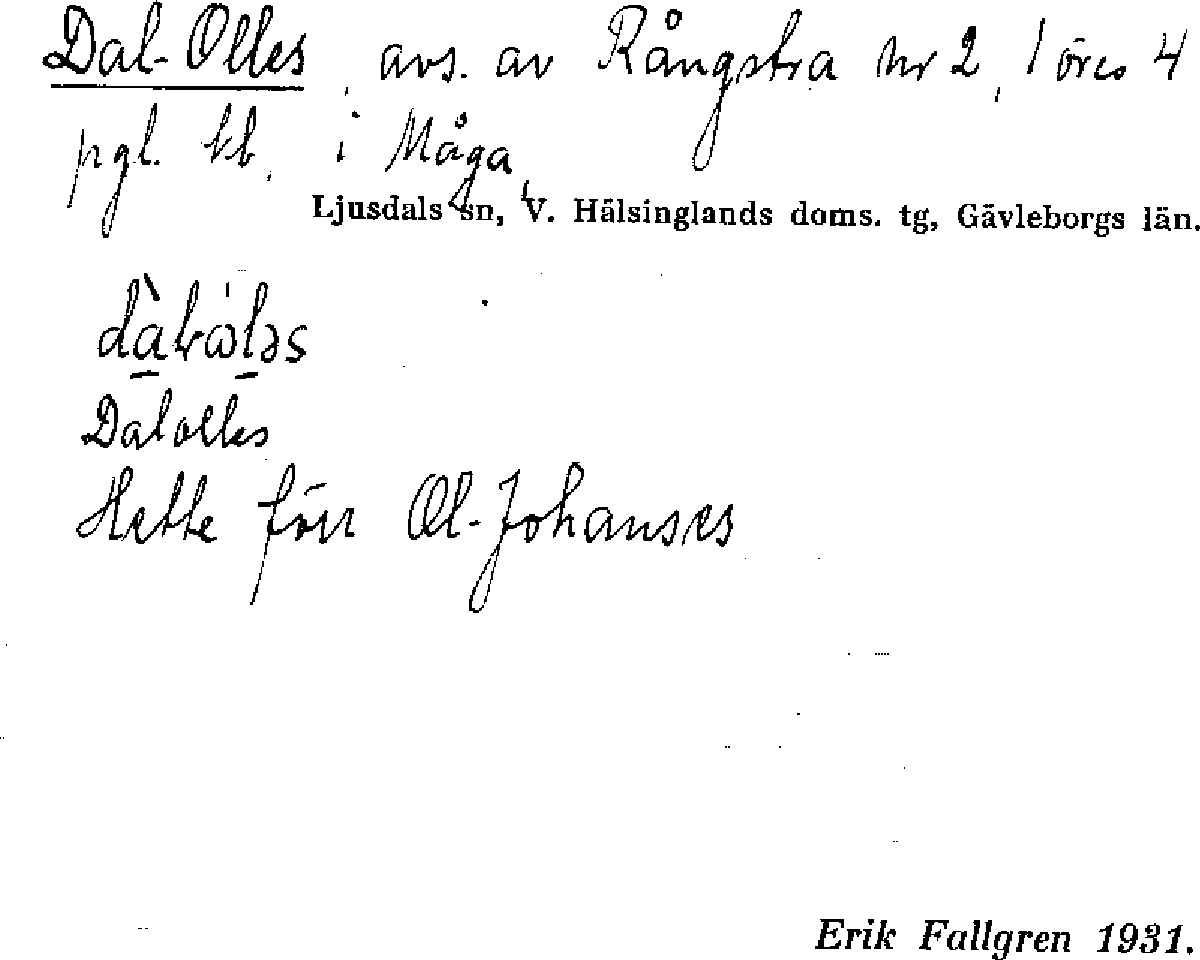 Dal-Olles, avs. av Rångstra nr 2, 1 öres 4
pgl. kb. i Måga,
Ljusdals sn, V. Hälsinglands doms. tg, Gävleborgs län.
Dalolles
Hette förr Ol-Johanses
Erik Fallgren 1931.